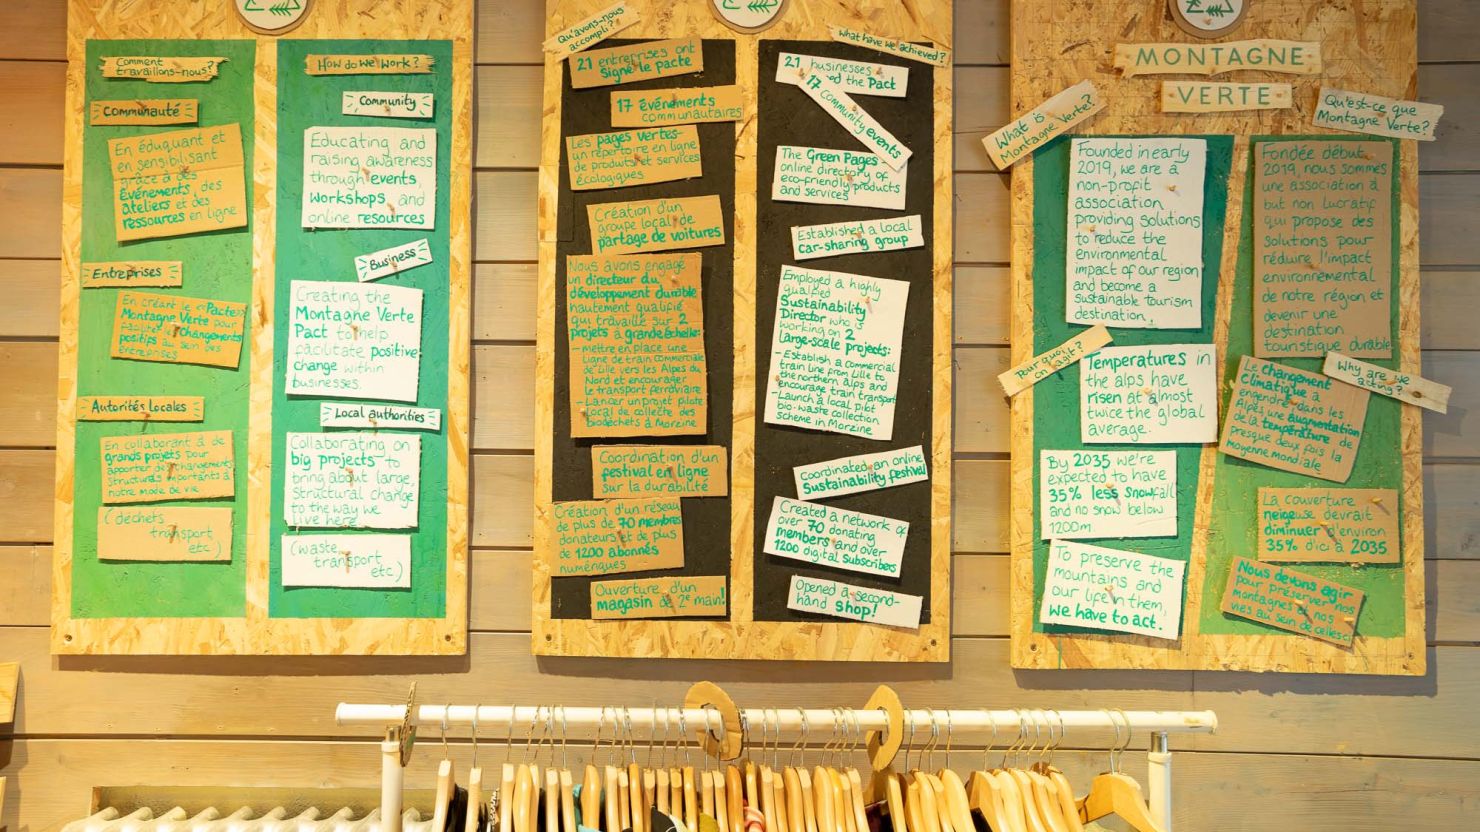 Comment
travaillons-nous?
Communauté
En éduquant et
en sensibilisant
grâce à des
événements, des
ateliers et des
ressources en ligne
Entreprises
En créant le «Pacte»
Montagne Verte pour
faciliter les changements
positifs au sein des
entreprises
Autorités locales
En collaborant à de
grands projets pour
apporter des changements
structurels importants à
notre mode de vie
(déchets
transport,
etc)
How do we work?
Community
Educating and
raising awareness
through events,
Workshops and
online resources
Business
Creating the
Montagne Verte
Pact to help
facilitate positive
change within
businesses.
Local authorities
Collaborating on
big projects to
bring about large,
structural change
to the way we
live here
(waste,
transport,
etc)
Qu'avons-nous
accompli?
21 entreprises ont
signé le pacte
17 événements
communautaires
Les pages vertes-
un répertoire en ligne
de produits et services
écologiques
Création d'un
groupe local de
partage de voitures
Nous avons engagé
un directeur du
développement durable
hautement qualifié
qui travaille sur 2
projets à grande échelle:
- mettre en place une
Ligne de train commerciale
de Lille vers les Alpes du
Nord et encourager
le transport ferroviaire
- Lancer un projet pilote
Local de collecte des
biodéchets à Morzine
Coordination d'un
festival en ligne
sur la durabilité
Création d'un réseau
de plus de 70 membres
donateurs et de plus
de 1200 abonnés
numériques
Ouverture d'un
magasin de 2e main!
What have we achieved?
21 businesses
the Pact
17 community events
The Green Pages
online directory of
eco-friendly products
and services
Established a local
car-sharing group
Employed a highly
qualified
Sustainability
Director who is
working on 2
large-scale projects:
- Establish a commercial
train line from Lille to
the northern alps and
encourage train transport
- Launch a local pilot
bio-waste collection
scheme in Morzine
Coordinated an online
Sustainability festival
Created a network of
over 70 donating
members and over
1200 digital subscribers
Opened a second-
hand shop!
MONTAGNE
VERTE
What is
Montagne Verte?
Founded in early
2019, we are a
non-profit
association
providing solutions
to reduce the
environmental
impact of our region
and become a
sustainable tourism
destination.
Pourquoi
on agit?
Temperatures in
the alps have
risen at almost
twice the global
average.
By 2035 we're
expected to have
35% less snowfall
and no snow below
1200m.
To preserve the
mountains and
our life in them,
we have to act.
Qu'est-ce que
Montagne Verte?
Fondée début
2019, nous sommes
une association à
but non lucratif
qui propose des
solutions pour
réduire l'impact
environnemental
de notre région et
devenir une
destination
touristique durable
Why are we
acting?
Le changement
Climatique a
engendré dans les
Alpes une augmentation
de la température de
presque deux fois la
moyenne mondiale
La couverture
neigeuse devrait
diminuer d'environ
35% d'ici à 2035
Nous devons agir
pour préserver nos
montagnes et nos
vies au sein de celles ci